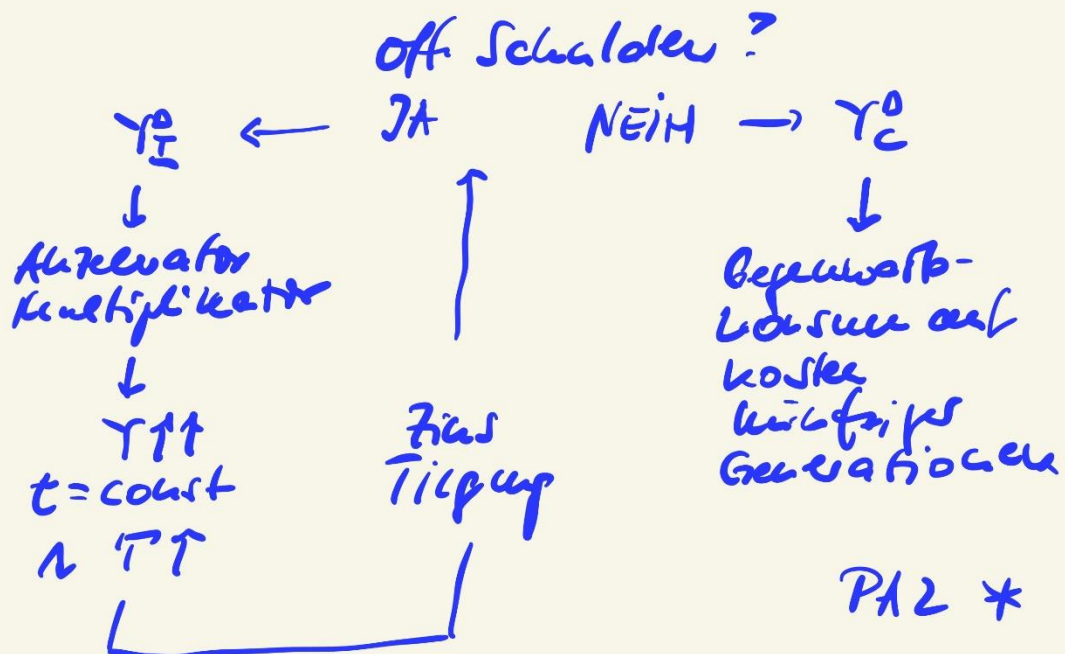 öff. Schulden?
Y^D_I ← JA NEIN → Y^D_C
↓
Akzelerator
Multiplikator
↓
Y↑↑
t = const
T↑
Zins
Tilgung
↓
Gegenwarts-
konsum auf
Kosten
künftiger
Generationen
PA2 *